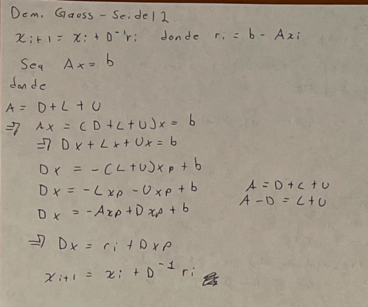 Dem. Gauss-Seidel 2
xi+1 = xi + D⁻¹ri donde ri = b - Axi
Sea Ax = b
donde
A = D + L + U
⇒ Ax = (D+L+U)x = b
⇒ Dx + Lx + Ux = b
Dx = -(L+U)xp + b
Dx = -Lxp - Uxp + b
A = D+L+U
Dx = -Axp + Dxp + b
A - D = L+U
⇒ Dx = ri + Dxp
xi+1 = xi + D⁻¹ ri